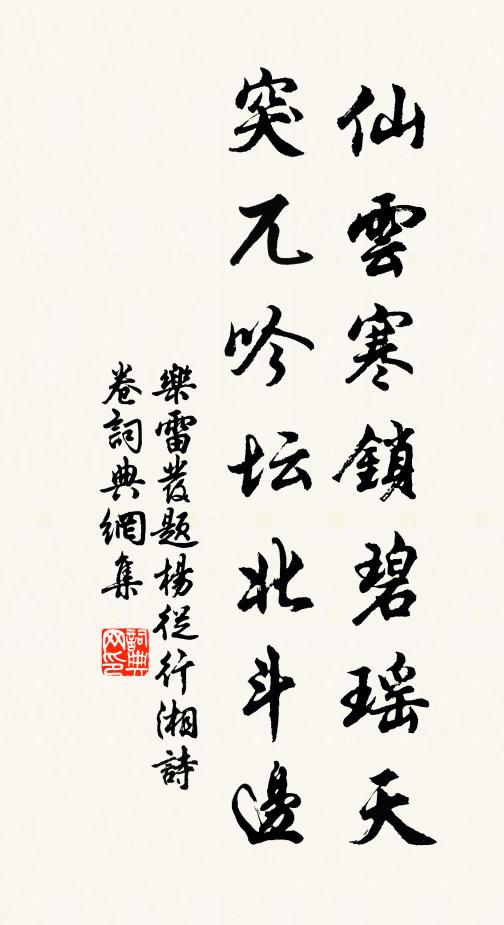 仙雲寒鎖碧瑤天
突兀吟坛北斗邊
樂雷發题楊從行湘詩
卷詞典網集
詞典网印